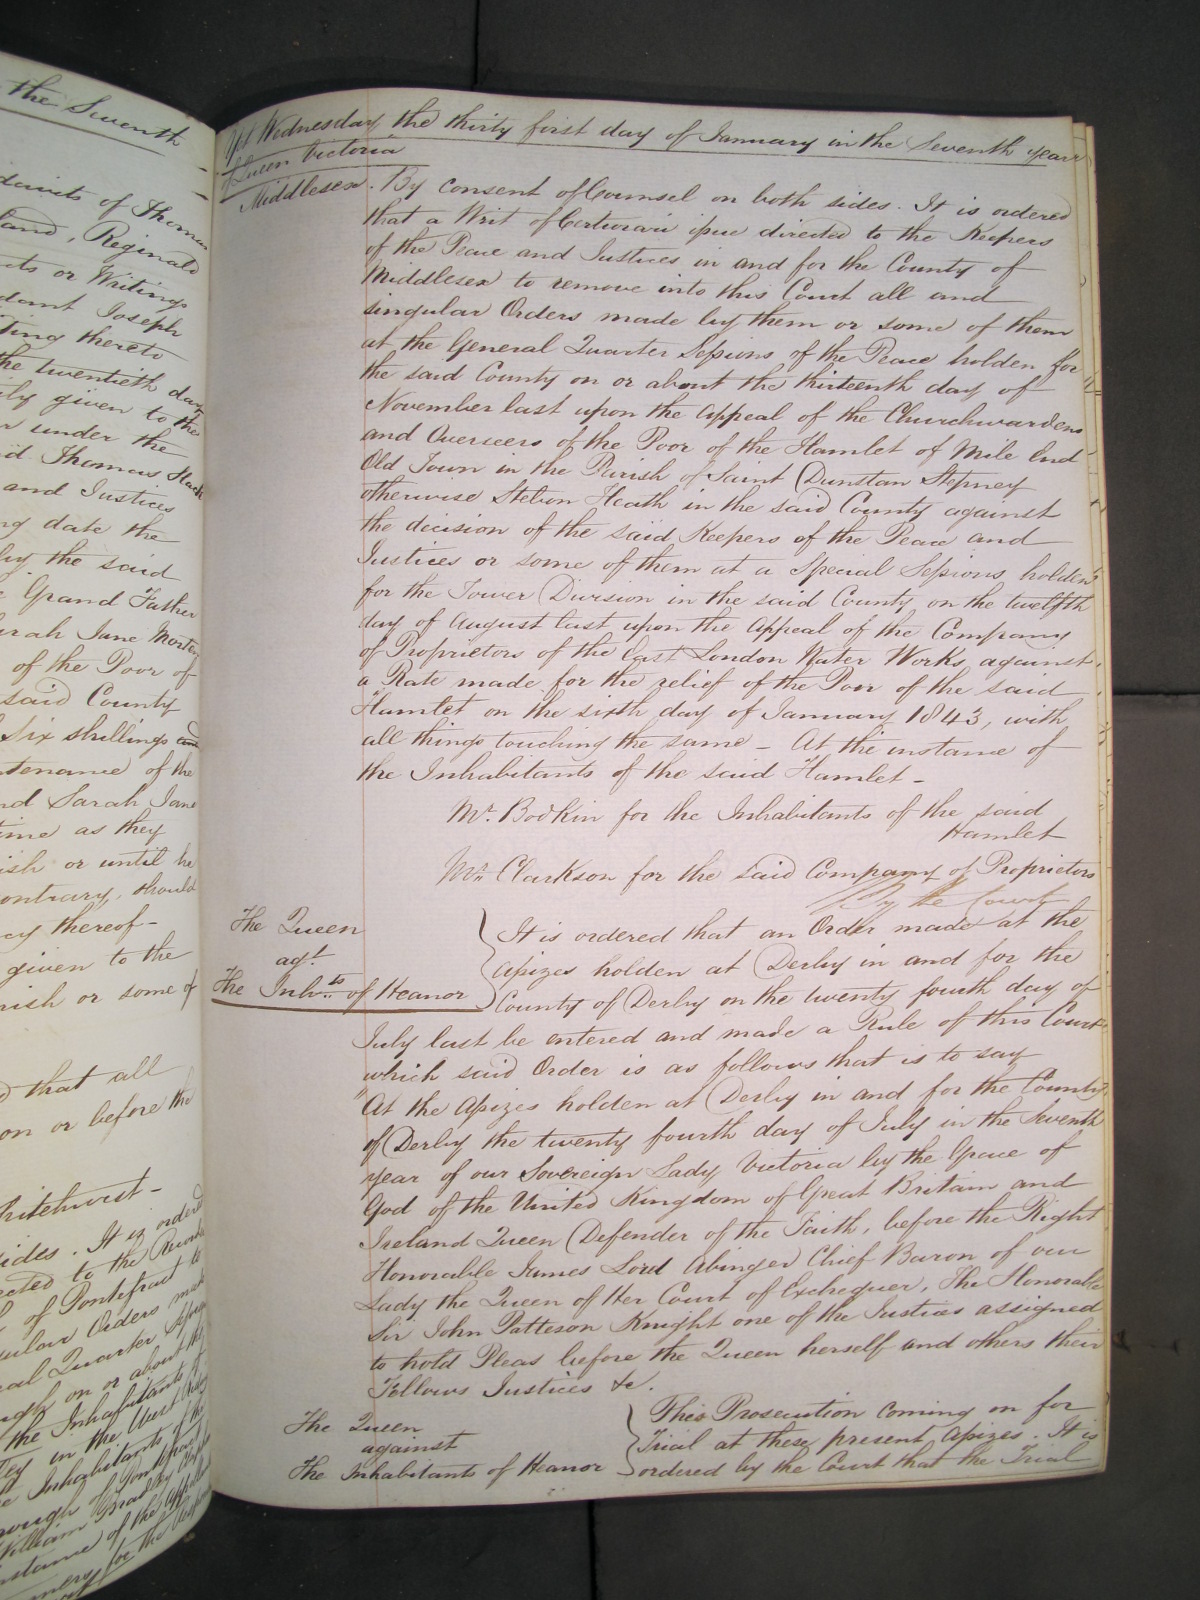 the Seventh
davits of Thomas
land, Reginald
nts or Writings
dant Joseph
ting thereto
the twentieth day
ily given to the
r under the
id Thomas Slack
and Justices
ng date the
by the said
Grand Father
arah Jane Morton
of the Poor of
said County
Six shillings and
ntenance of the
nd Sarah Jane
time as they
ish or until he
contrary, should
cy thereof
given to the
rish or some of
d that all
on or before the
hitehurst
sides. It is ordered
ected to the Recorder
of Pontefract to
gular Orders made
ral Quarter Sessions
ugh on or about the
the Inhabitants of
ley in the West Riding
e Inhabitants of the
rough of Pontefract
William Bradley
nstance of the
Yet Wednesday the thirty first day of January in the Seventh year
of Queen Victoria
Middlesex. By consent of Counsel on both sides. It is ordered
that a Writ of Certiorari issue directed to the Keepers
of the Peace and Justices in and for the County of
Middlesex to remove into this Court all and
singular Orders made by them or some of them
at the General Quarter Sessions of the Peace holden for
the said County on or about the thirteenth day of
November last upon the Appeal of the Churchwardens
and Overseers of the Poor of the Hamlet of Mile End
Old Town in the Parish of Saint Dunstan Stepney
otherwise Stebon Heath in the said County against
the decision of the said Keepers of the Peace and
Justices or some of them at a Special Sessions holden
for the Tower Division in the said County on the twelfth
day of August last upon the Appeal of the Company
of Proprietors of the East London Water Works against
a Rate made for the relief of the Poor of the said
Hamlet on the sixth day of January 1843, with
all things touching the same – At the instance of
the Inhabitants of the said Hamlet –
Mr. Bodkin for the Inhabitants of the said
Hamlet
Mr. Clarkson for the said Company of Proprietors
By the Court
The Queen
agt.
The Inhts. of Heanor
It is ordered that an Order made at the
Assizes holden at Derby in and for the
County of Derby on the twenty fourth day of
July last be entered and made a Rule of this Court
which said Order is as follows that is to say
"At the Assizes holden at Derby in and for the County
of Derby the twenty fourth day of July in the Seventh
year of our Sovereign Lady Victoria by the Grace of
God of the United Kingdom of Great Britain and
Ireland Queen Defender of the Faith, before the Right
Honorable James Lord Abinger Chief Baron of our
Lady the Queen of Her Court of Exchequer, The Honorable
Sir John Patteson Knight one of the Justices assigned
to hold Pleas before the Queen herself and others their
Fellows Justices &c.
The Queen
against
The Inhabitants of Heanor
This Prosecution coming on for
Trial at these present Assizes. It is
ordered by the Court that the Trial